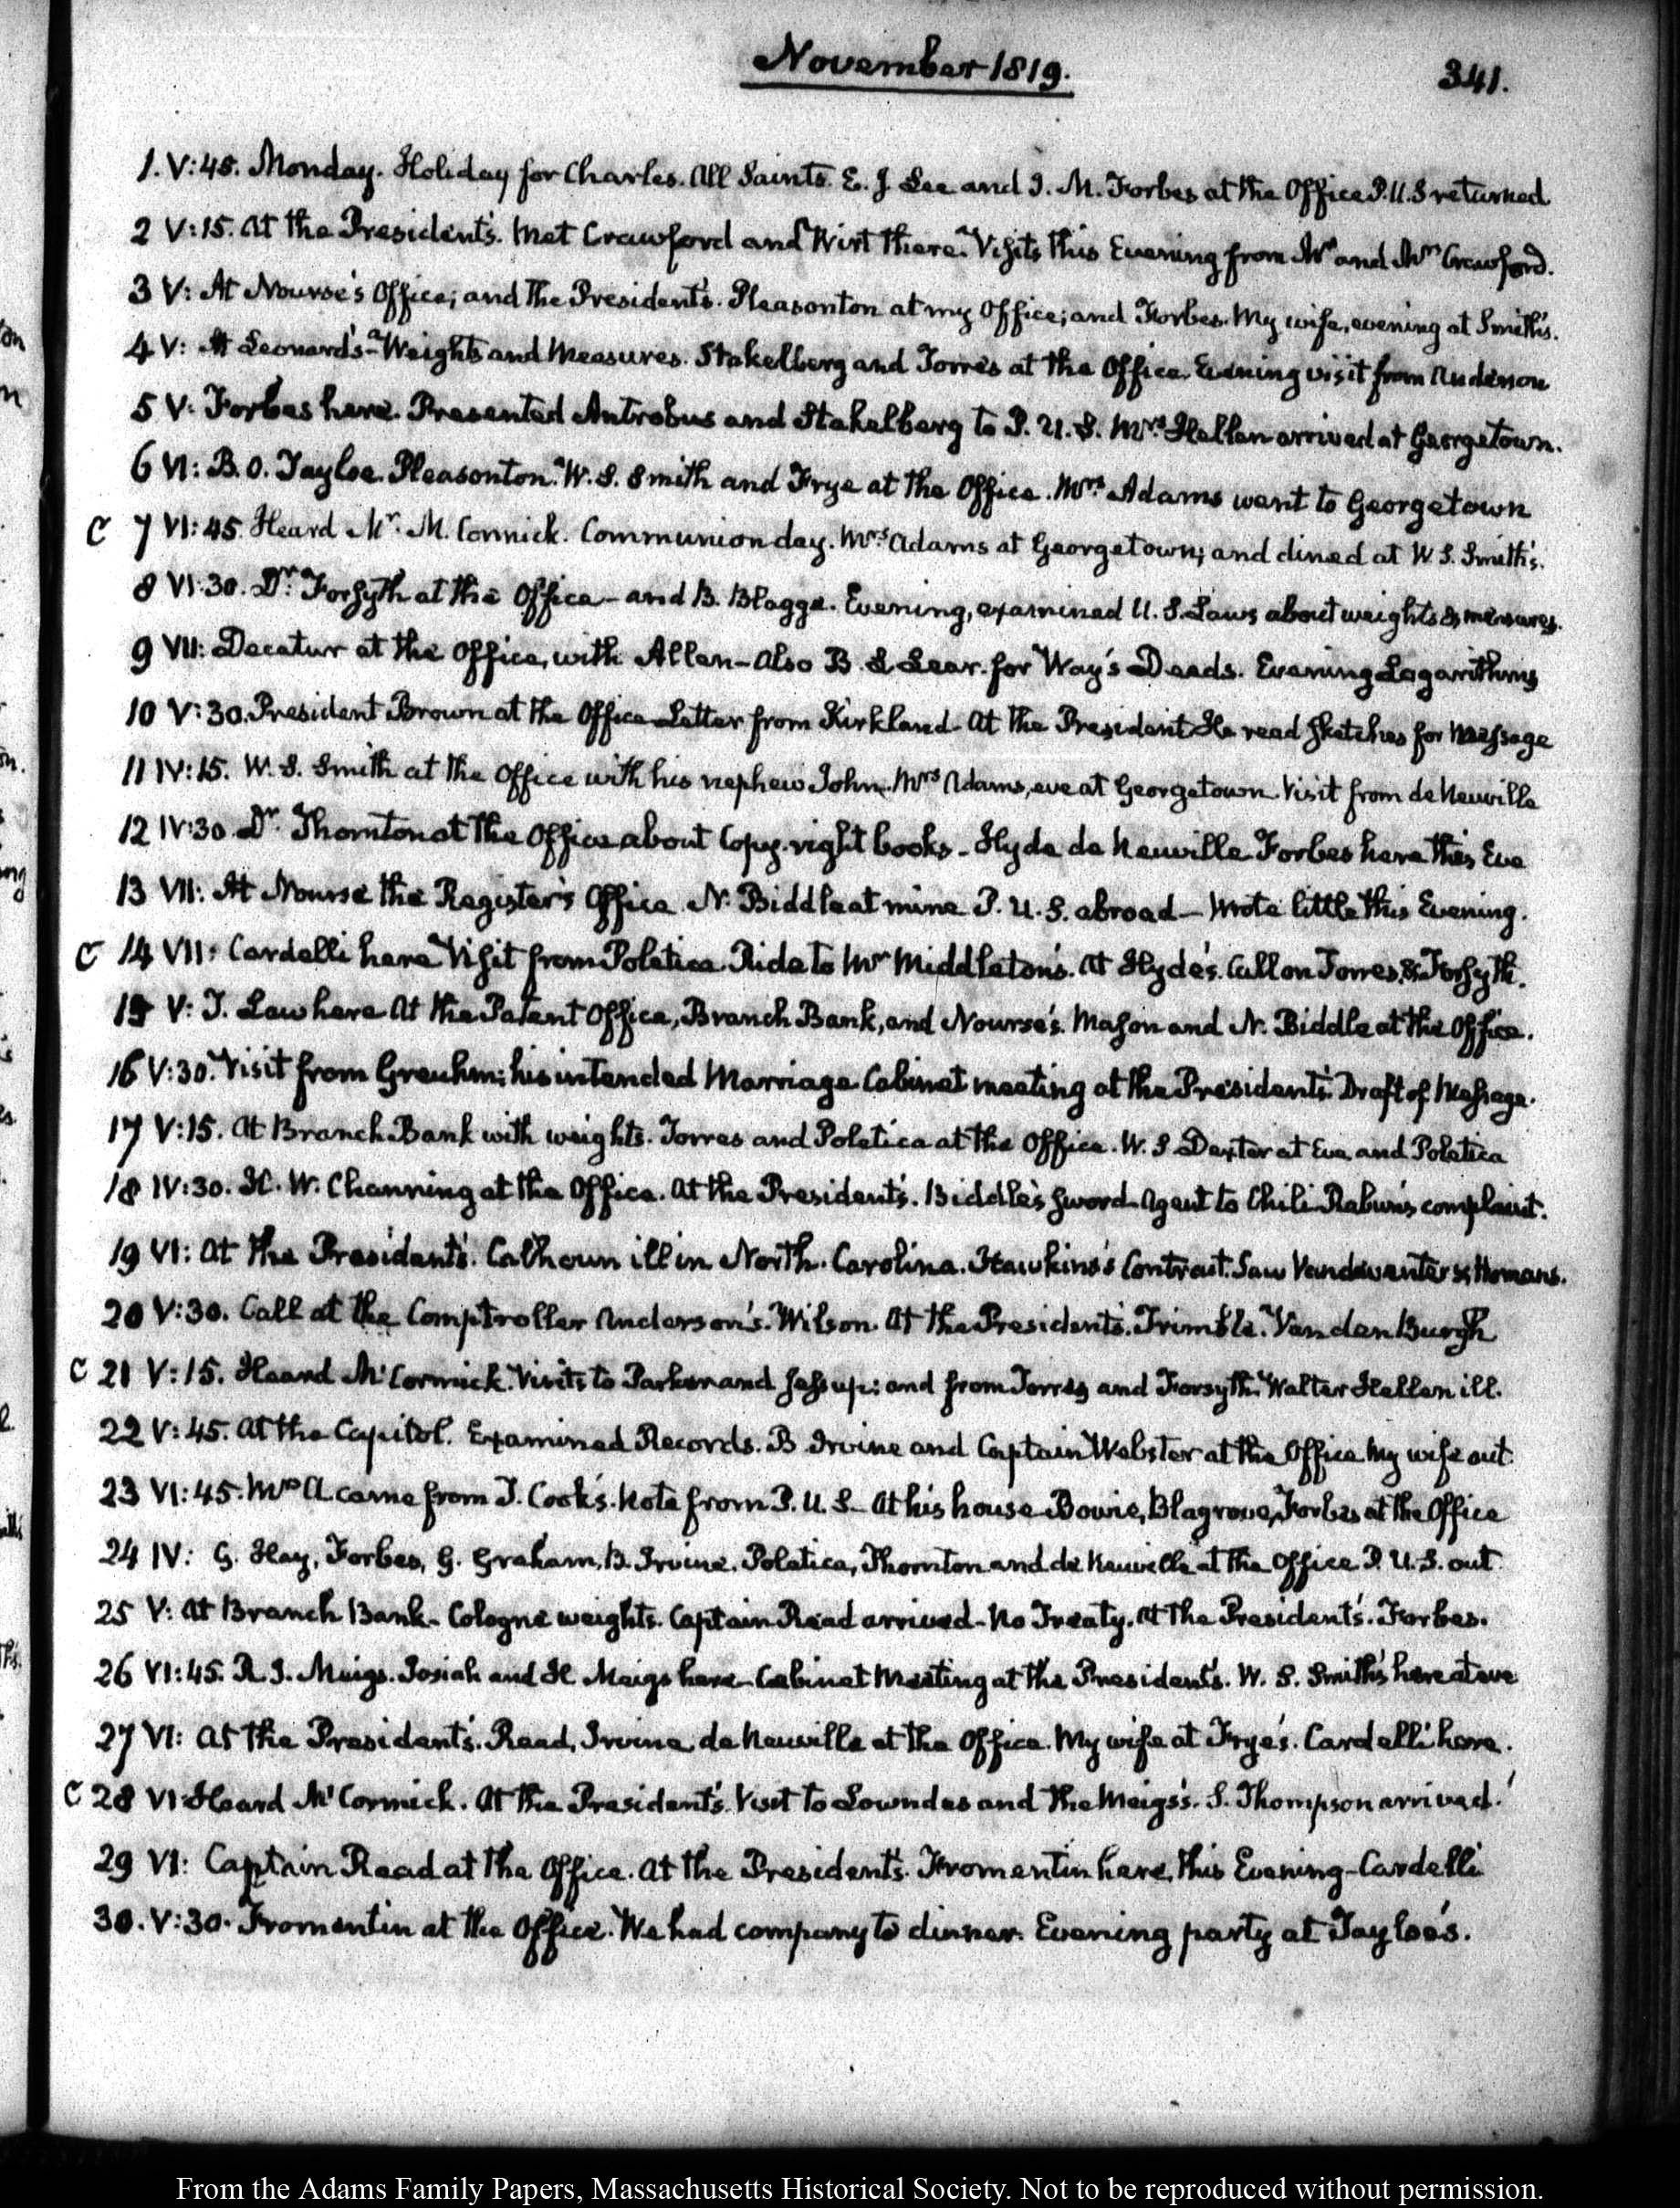 November 1819.
341.
1. V:45. Monday. Holiday for Charles. All Saints. E. J. Lee and J. M. Forbes at the Office P.U.S returned.
2 V:15. At the President's. Met Crawford and Wirt there. Visits this Evening from Mr and Mrs Crawford.
3 V: At Nourse's Office; and the President's. Pleasonton at my Office; and Forbes. My wife, evening at Smith's.
4 V: At Leonard's—Weights and Measures. Stakelberg and Torres at the Office. Evening visit from Anderson
5 V: Forbes here. Presented Antrobus and Stakelberg to P. U. S. Mrs. Hellen arrived at Georgetown.
6 VI: B. O. Tayloe. Pleasonton. W. S. Smith and Frye at the Office. Mrs. Adams went to Georgetown
C 7 VI:45. Heard Mr. McCormick. Communion day. Mrs. Adams at Georgetown; and dined at W. S. Smith's.
8 VI:30. Dr. Forsyth at the Office—and B. Blagge. Evening, examined U. S. Laws about weights & measures.
9 VII: Decatur at the Office, with Allen—also B. L Lear. for Way's Deeds. Evening Logarithms
10 V:30. President Brown at the Office—Letter from Kirkland—At the President He read sketches for Message
11 IV:15. W. S. Smith at the Office with his nephew John. Mrs Adams, eve at Georgetown. Visit from de Neuville
12 IV:30 Dr. Thornton at the Office about Copy-right books—Hyde de Neuville Forbes here this Eve
13 VII: At Nourse the Register's Office. N. Biddle at mine P. U. S. abroad—Wrote little this Evening.
C 14 VII: Cardelli here Visit from Poletica. Ride to Mr Middleton's. At Hyde's. Call on Torres, & Forsyth.
15 V: T. Law here At the Patent Office, Branch Bank, and Nourse's. Mason and N. Biddle at the Office.
16 V:30. Visit from Greuhm; his intended Marriage Cabinet meeting at the President's. Draft of Message.
17 V:15. At Branch Bank with weights. Torres and Poletica at the Office. W. S Dexter at Eve and Poletica
18 IV:30. H. W. Channing at the Office. At the President's. Biddle's sword—Agent to Chili Rabun's complaint.
19 VI: At the President's. Calhoun ill in North-Carolina. Hawkins's Contract. Saw Vandeventer & Homans.
20 V:30. Call at the Comptroller Anderson's. Wilson. At the President's. Trimble. Vanden Burgh
C 21 V:15. Heard McCormick. Visits to Parker and Jessup; and from Torres and Forsyth. Walter Hellen ill.
22 V:45. At the Capitol. Examined Records. B Irvine and Captain Webster at the Office My wife out.
23 VI:45. Mrs A. came from J. Cook's. Note from P. U. S—At his house—Bowie, Blagrove, Forbes at the Office
24 IV: G. Hay, Forbes, G. Graham, B. Irvine. Poletica, Thornton and de Neuville at the Office P. U. S. out.
25 V: At Branch Bank—Cologne weights. Captain Read arrived—No Treaty. At the President's. Forbes.
26 VI:45. R. J. Meigs. Josiah and H Meigs here—Cabinet Meeting at the President's. W. S. Smith's here at eve
27 VI: At the President's. Read, Irvine de Neuville at the Office. My wife at Frye's. Cardelli here.
C 28 VI: Heard McCormick. At the President's. Visit to Lowndes and the Meigs's. S. Thompson arrived.
29 VI: Captain Read at the Office. At the President's. Fromentin here, this Evening—Cardelli
30. V:30. Fromentin at the Office. We had company to dinner. Evening party at Tayloe's.
From the Adams Family Papers, Massachusetts Historical Society. Not to be reproduced without permission.